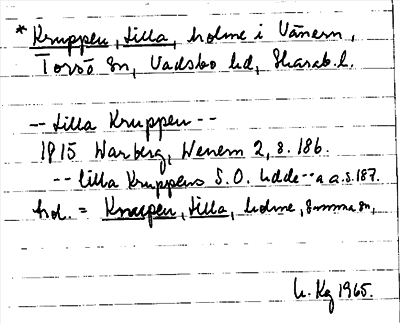 * Kruppen, Lilla, holme i Vänern,
Torsö sn, Vadsbo hd, Skarab. l.
-- Lilla Kruppen --
1915 Warberg, Wenern 2, s. 186.
-- lilla Kruppens S.O. udde -- a a. s. 187.
hd. = Knappen, Lilla, holme, samma sn,
1965.